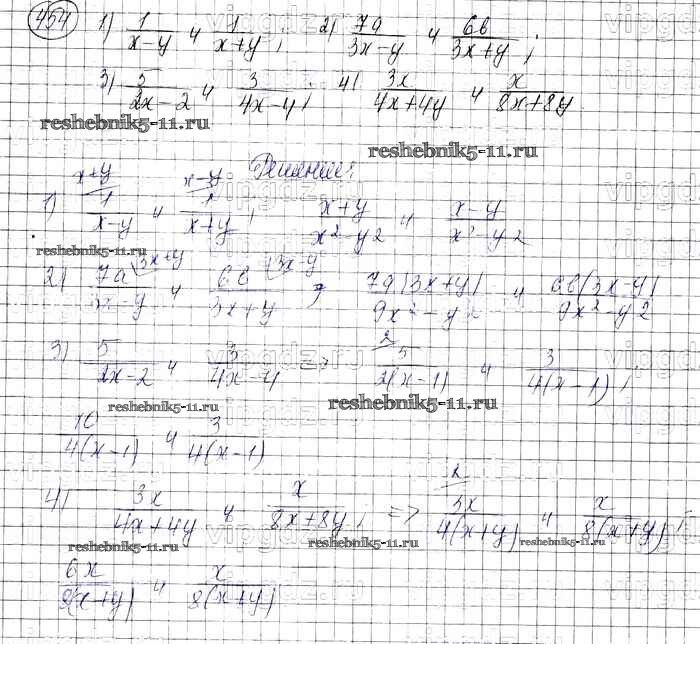 454 1) 1/(x-y) и 1/(x+y); 2) 7a/(3x-y) и 6b/(3x+y);
3) 5/(2x-2) и 3/(4x-4); 4) 3x/(4x+4y) и x/(8x+8y)
reshebnik5-11.ru reshebnik5-11.ru
Решение:
x+y x-y
1) 1/(x-y) и 1/(x+y); (x+y)/(x²-y²) и (x-y)/(x²-y²)
reshebnik5-11.ru
3x+y 3x-y
2) 7a/(3x-y) и 6b/(3x+y) ; 7a(3x+y)/(9x²-y²) и 6b(3x-y)/(9x²-y²)
2
3) 5/(2x-2) и 3/(4x-4) ; 5/(2(x-1)) и 3/(4(x-1));
reshebnik5-11.ru reshebnik5-11.ru
10/(4(x-1)) и 3/(4(x-1))
2
4) 3x/(4x+4y) и x/(8x+8y); => 3x/(4(x+y)) и x/(8(x+y));
reshebnik5-11.ru reshebnik5-11.ru reshebnik5-11.ru
6x/(8(x+y)) и x/(8(x+y))